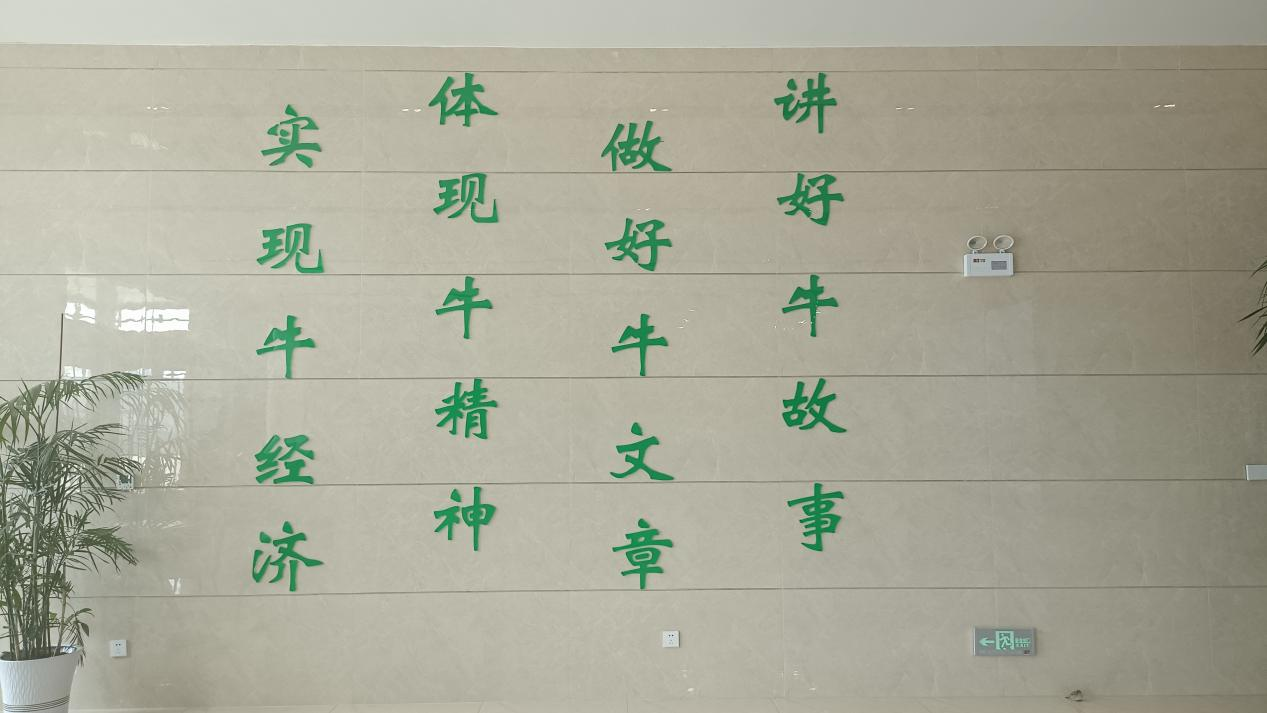 讲好牛故事
做好牛文章
体现牛精神
实现牛经济
EXIT